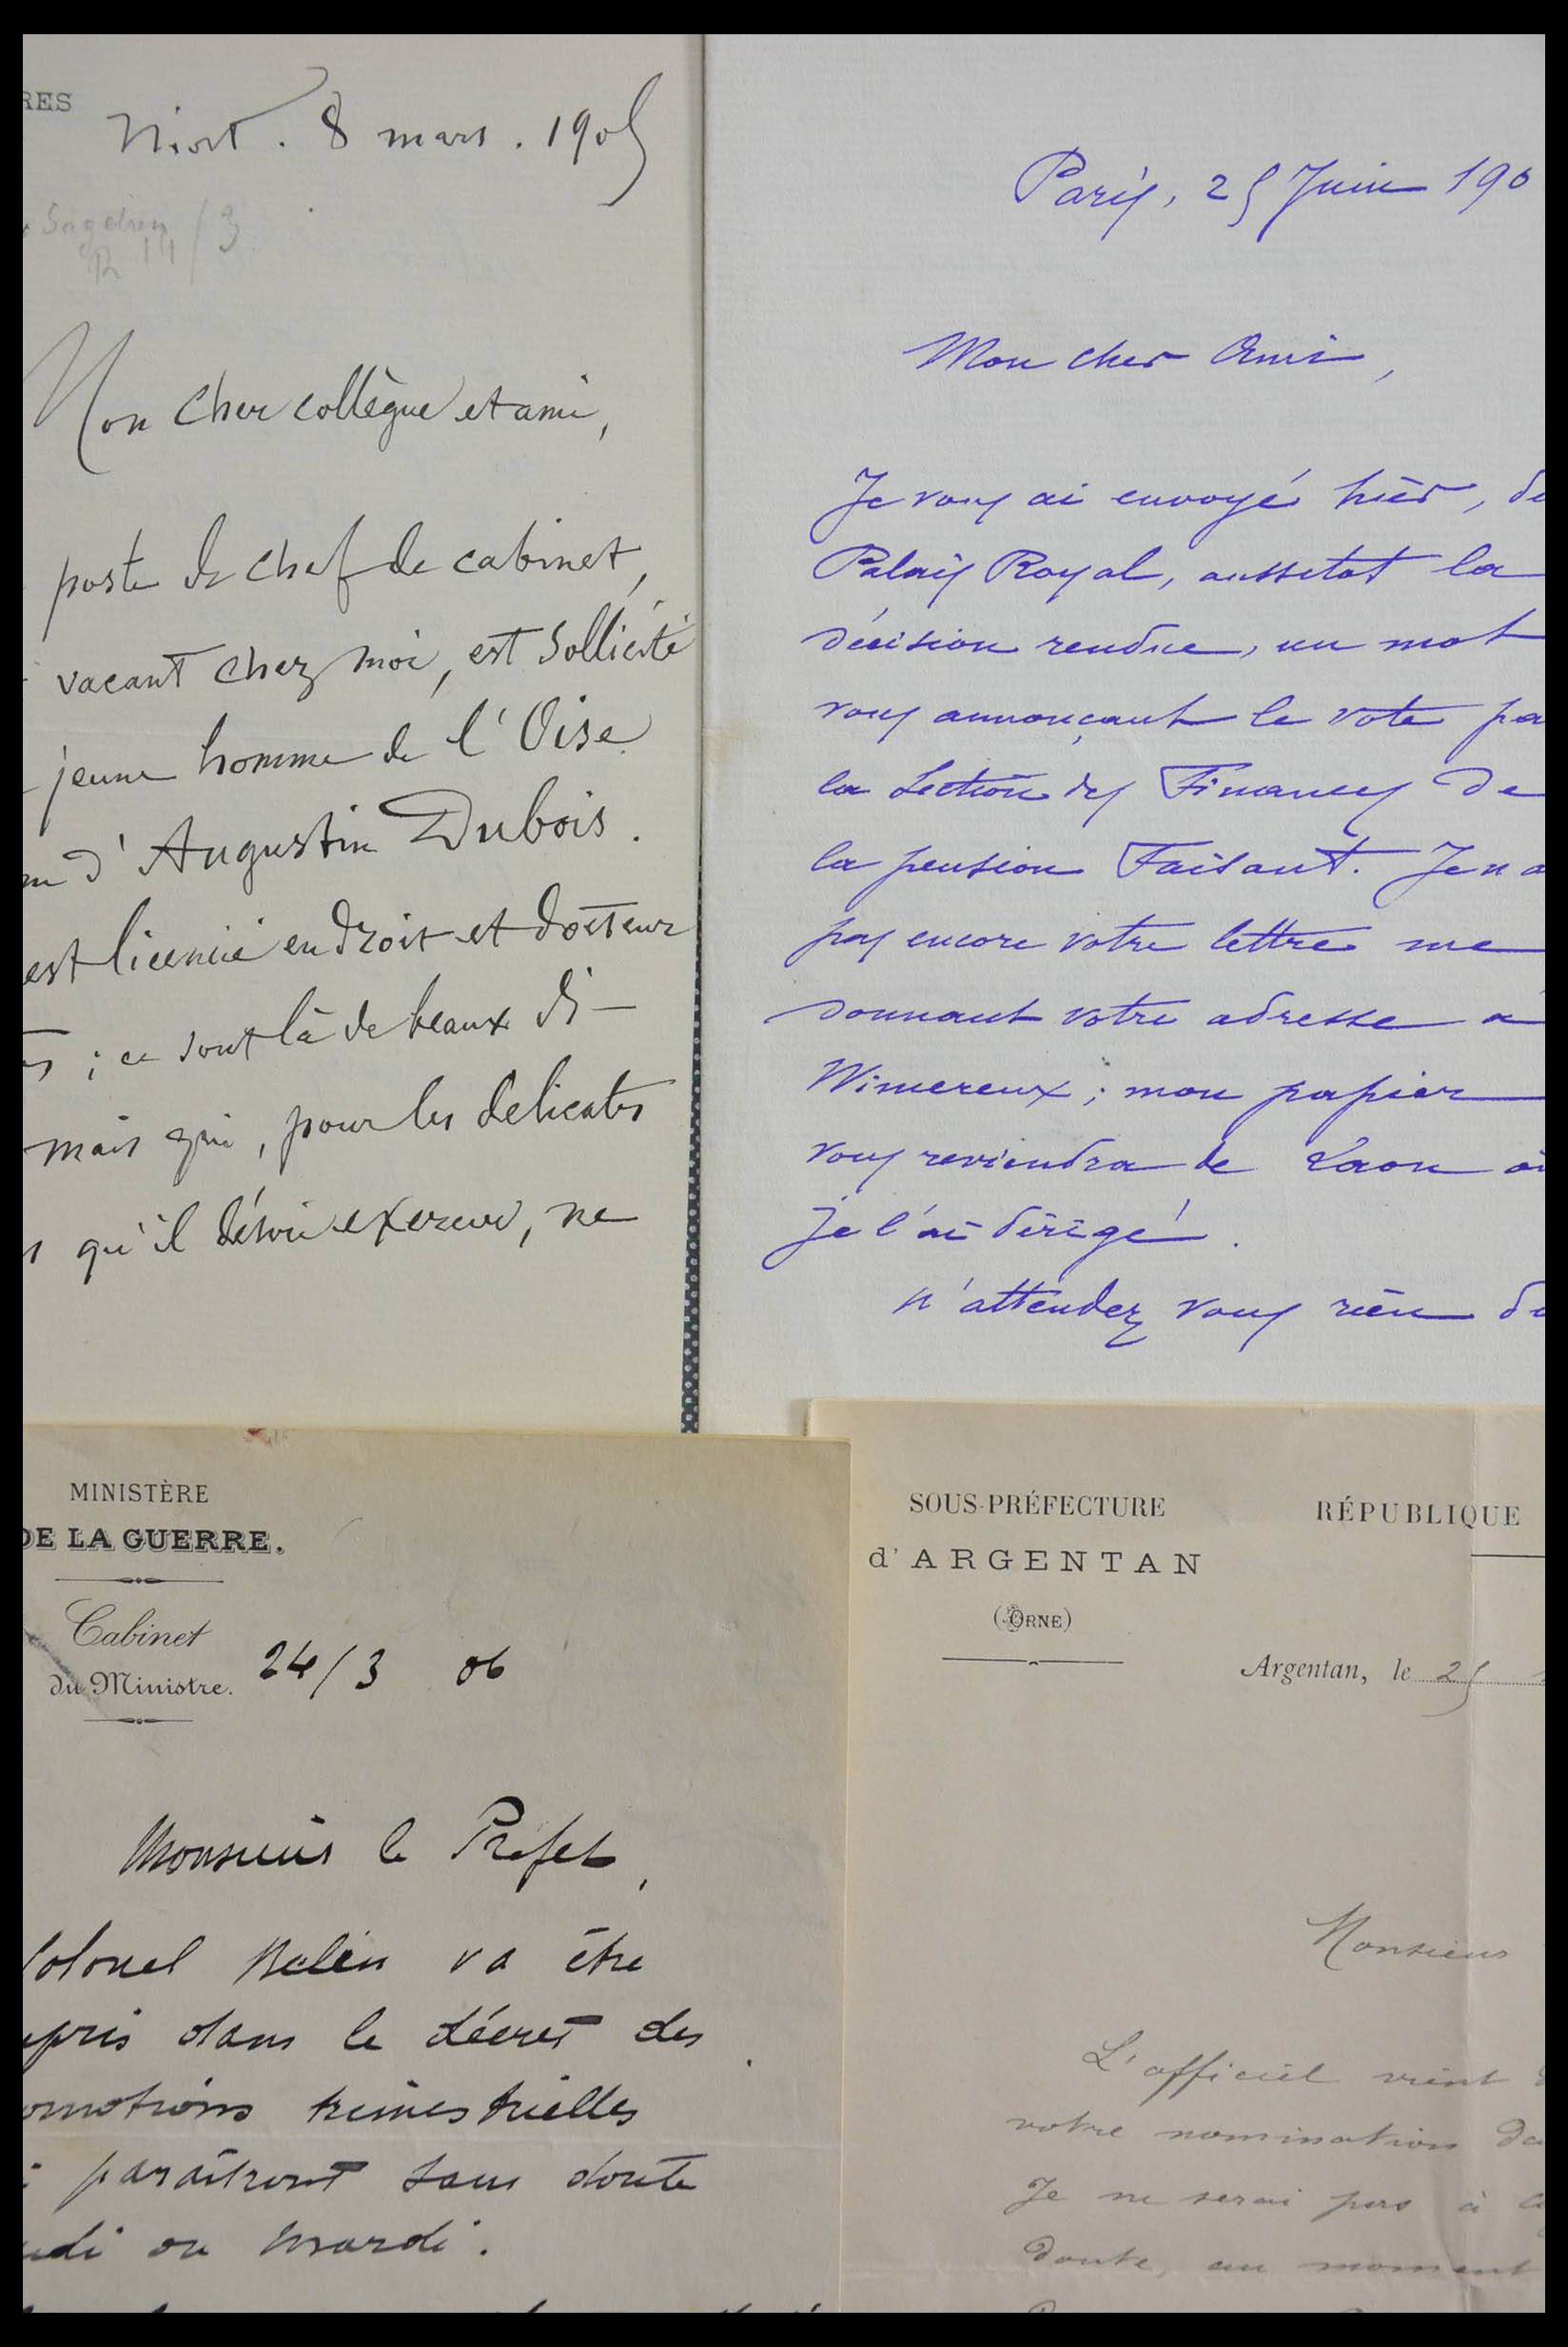 RES
Niort. 8 mars. 1905
Mon cher collègue et ami,
poste de chef de cabinet,
vacant chez moi, est sollicité
jeune homme de l'Oise
d'Augustin Dubois.
est licencié en droit et docteur
; ce sont là de beaux di-
mais qui, pour les delicates
qu'il désire exercer, ne
Paris, 25 Juin 190
Mon cher Ami,
Je vous ai envoyé hier, du
Palais Royal, aussitot la
décision rendue, un mot
vous annonçant le vote pa
la Section des Finances de
la pension Faisant. Je n'a
pas encore votre lettre me
donnant votre adresse à
Wimereux ; mon papier
vous reviendra de Laon où
je l'ai dirigé.
N'attendez vous rien du
MINISTÈRE
DE LA GUERRE.
Cabinet
du Ministre.
24/3 06
Monsieur le Préfet,
Colonel Belin va être
pris dans le décret des
omotions trimestrielles
paraîtront sans doute
di ou mardi.
SOUS-PRÉFECTURE
d'ARGENTAN
(ORNE)
RÉPUBLIQUE
Argentan, le 25
Monsieur
L'officiel vient
votre nomination da
Je ne serai pas à
doute, au moment